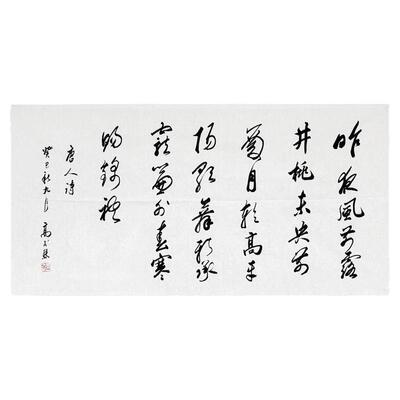 昨夜風開露
井桃未央前
殿月輪高平
陽歌舞新承
寵簾外春寒
賜錦袍
唐人詩
癸巳秋九月
高